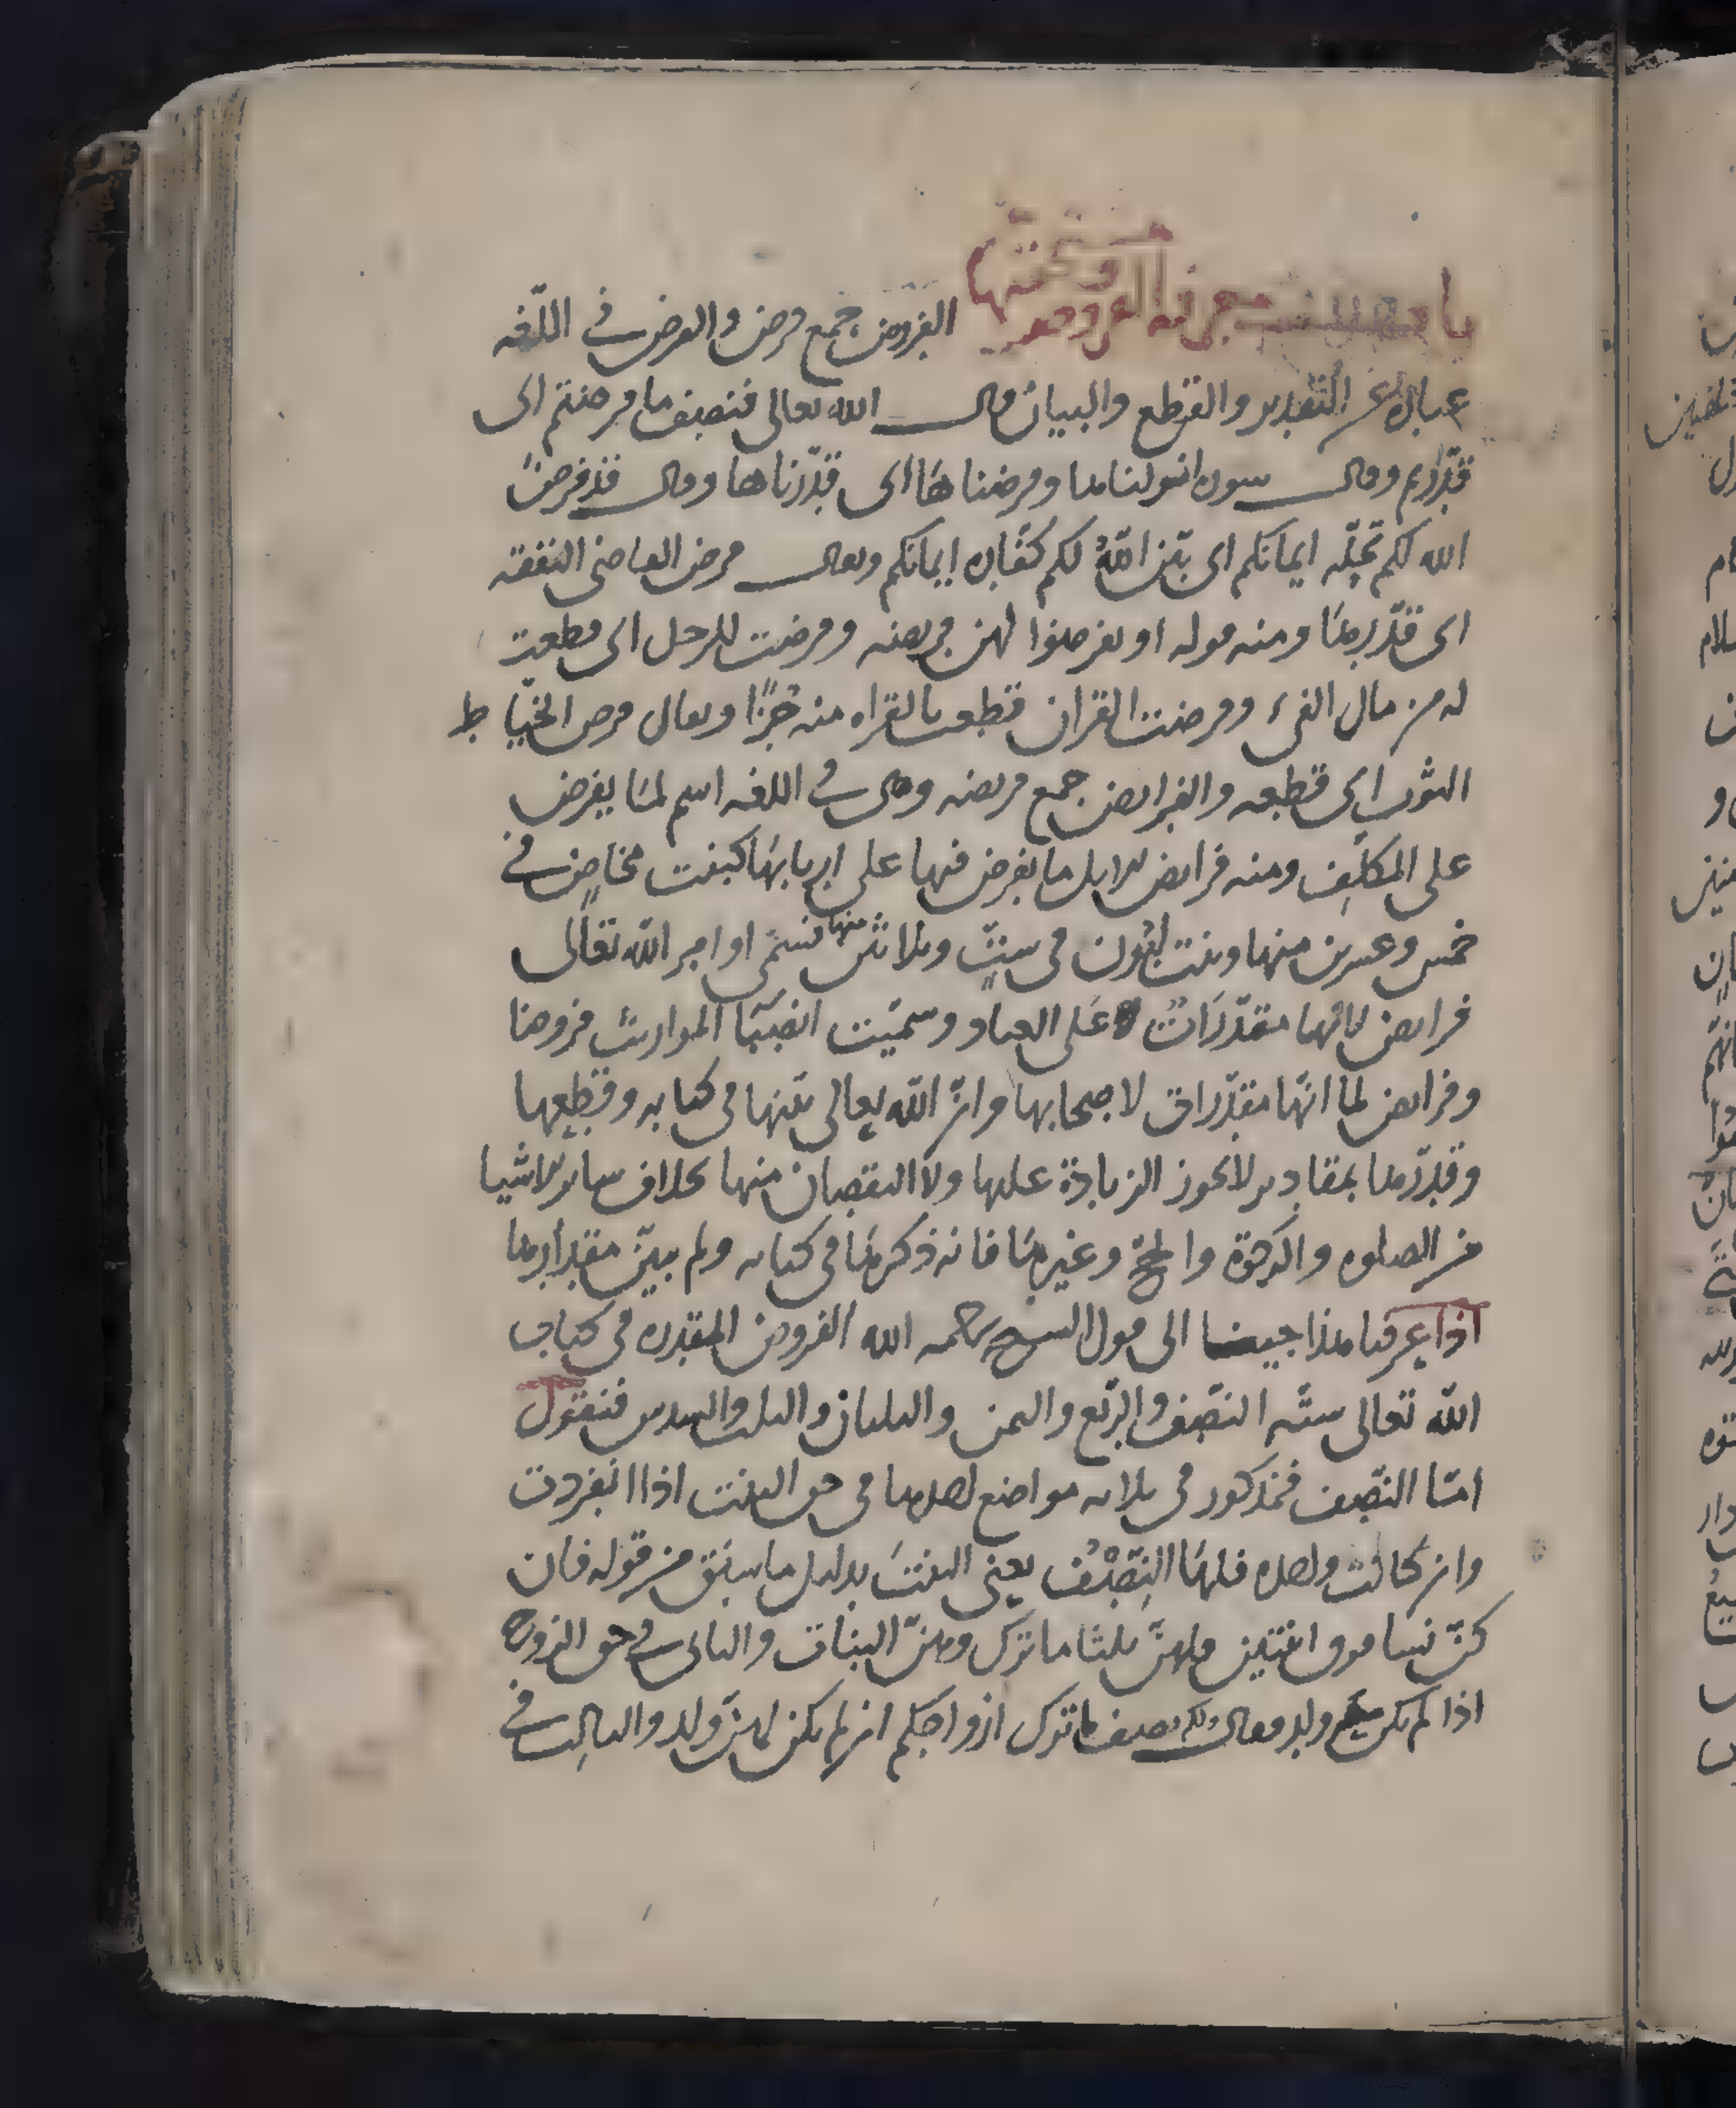 باب معرفة الفروض ومستحقيها الفروض جمع فرض والفرض في اللغه
عباره عن التقدير والقطع والبيان قال الله تعالى فنصف ما فرضتم اى
قدرتم وقال سوره انزلناها وفرضناها اى قدرناها وقال قد فرض
الله لكم تحله ايمانكم اى بين الله لكم كفاره ايمانكم ويقال فرض القاضى النفقه
اى قدرها ومنه قوله او تفرضوا لهن فريضه وفرضت للرجل اى قطعت
له من مال الفىء وفرضت القران قطعت بالقراه منه جزءا ويقال فرض الخياط
الثوب اى قطعه والفرايض جمع فريضه وهى في اللغه اسم لما يفرض
على المكلف ومنه فرايض الابل ما يفرض فيها على اربابها كبنت مخاض في
خمس وعشرين منها وبنت لبون فى ست وثلاثين منها فتسمى اوامر الله تعالى
فرايض لانها مقدرات على العباد وسميت انصبا المواريث فروضا
وفرايض لما انها مقدرات لاصحابها وان الله تعالى بينها فى كتابه وقطعها
وقدرها بمقادير لا يجوز الزيادة عليها ولا النقصان منها بخلاف ساير الاشيا
من الصلوه والزكوة والحج وغيرها فانه ذكرها فى كتابه ولم يبين مقدارها
اذا عرفنا هذا جينا الى قول الشيخ رحمه الله الفروض المقدره فى كتاب
الله تعالى سته النصف والربع والثمن والثلثان والثلث والسدس فنقول
امّا النصف فمذكور فى ثلاثه مواضع احدها فى حق البنت اذا انفردت
وان كانت واحده فلها النصف يعنى البنت بدليل ما سبق من قوله فان
كن نسا فوق اثنتين فلهن ثلثا ما ترك وهن البنات والثانى في حق الزوج
اذا لم يكن ولد فقال ولكم نصف ما ترك ازواجكم ان لم يكن لهن ولد والثالث في